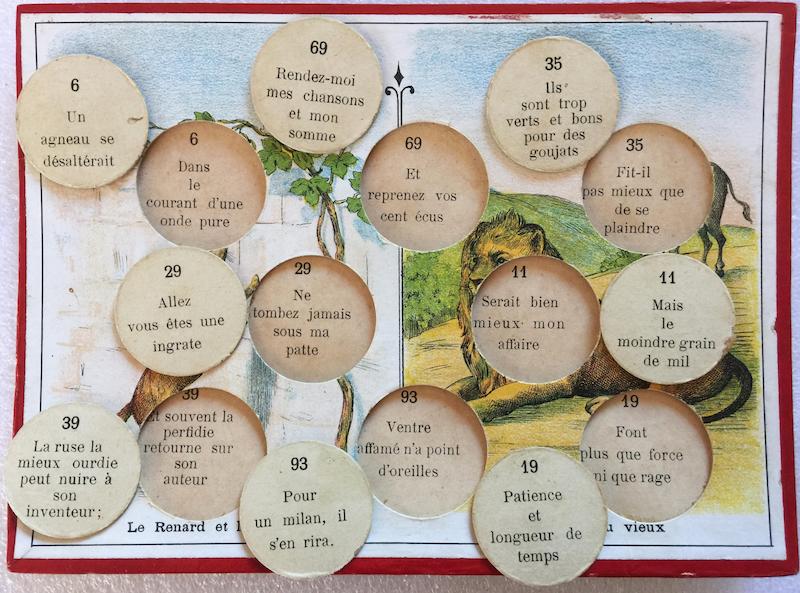 69
Rendez-moi
mes chansons
et mon
somme
35
Ils
sont trop
verts et bons
pour des
goujats
6
Un
agneau se
désaltérait
6
Dans
le
courant d'une
onde pure
69
Et
reprenez vos
cent écus
35
Fit-il
pas mieux que
de se
plaindre
29
Allez
vous êtes une
ingrate
29
Ne
tombez jamais
sous ma
patte
11
Serait bien
mieux mon
affaire
11
Mais
le
moindre grain
de mil
39
La ruse la
mieux ourdie
peut nuire à
son
inventeur;
39
Et souvent la
perfidie
retourne sur
son
auteur
93
Pour
un milan, il
s'en rira.
93
Ventre
affamé n'a point
d'oreilles
19
Patience
et
longueur de
temps
19
Font
plus que force
ni que rage
Le Renard et
vieux